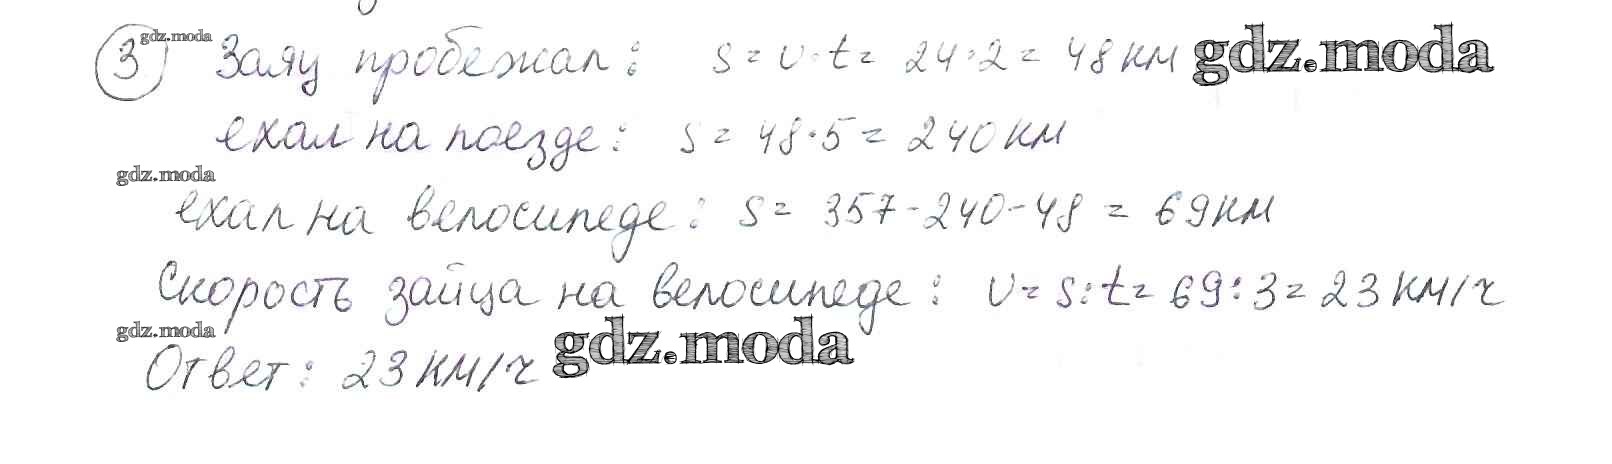 3 gdz.moda Заяц пробежал: s = v·t = 24·2 = 48 км gdz.moda
ехал на поезде: s = 48·5 = 240 км
gdz.moda
ехал на велосипеде: s = 357-240-48 = 69 км
Скорость зайца на велосипеде: v = s:t = 69:3 = 23 км/ч
gdz.moda
Ответ: 23 км/ч gdz.moda